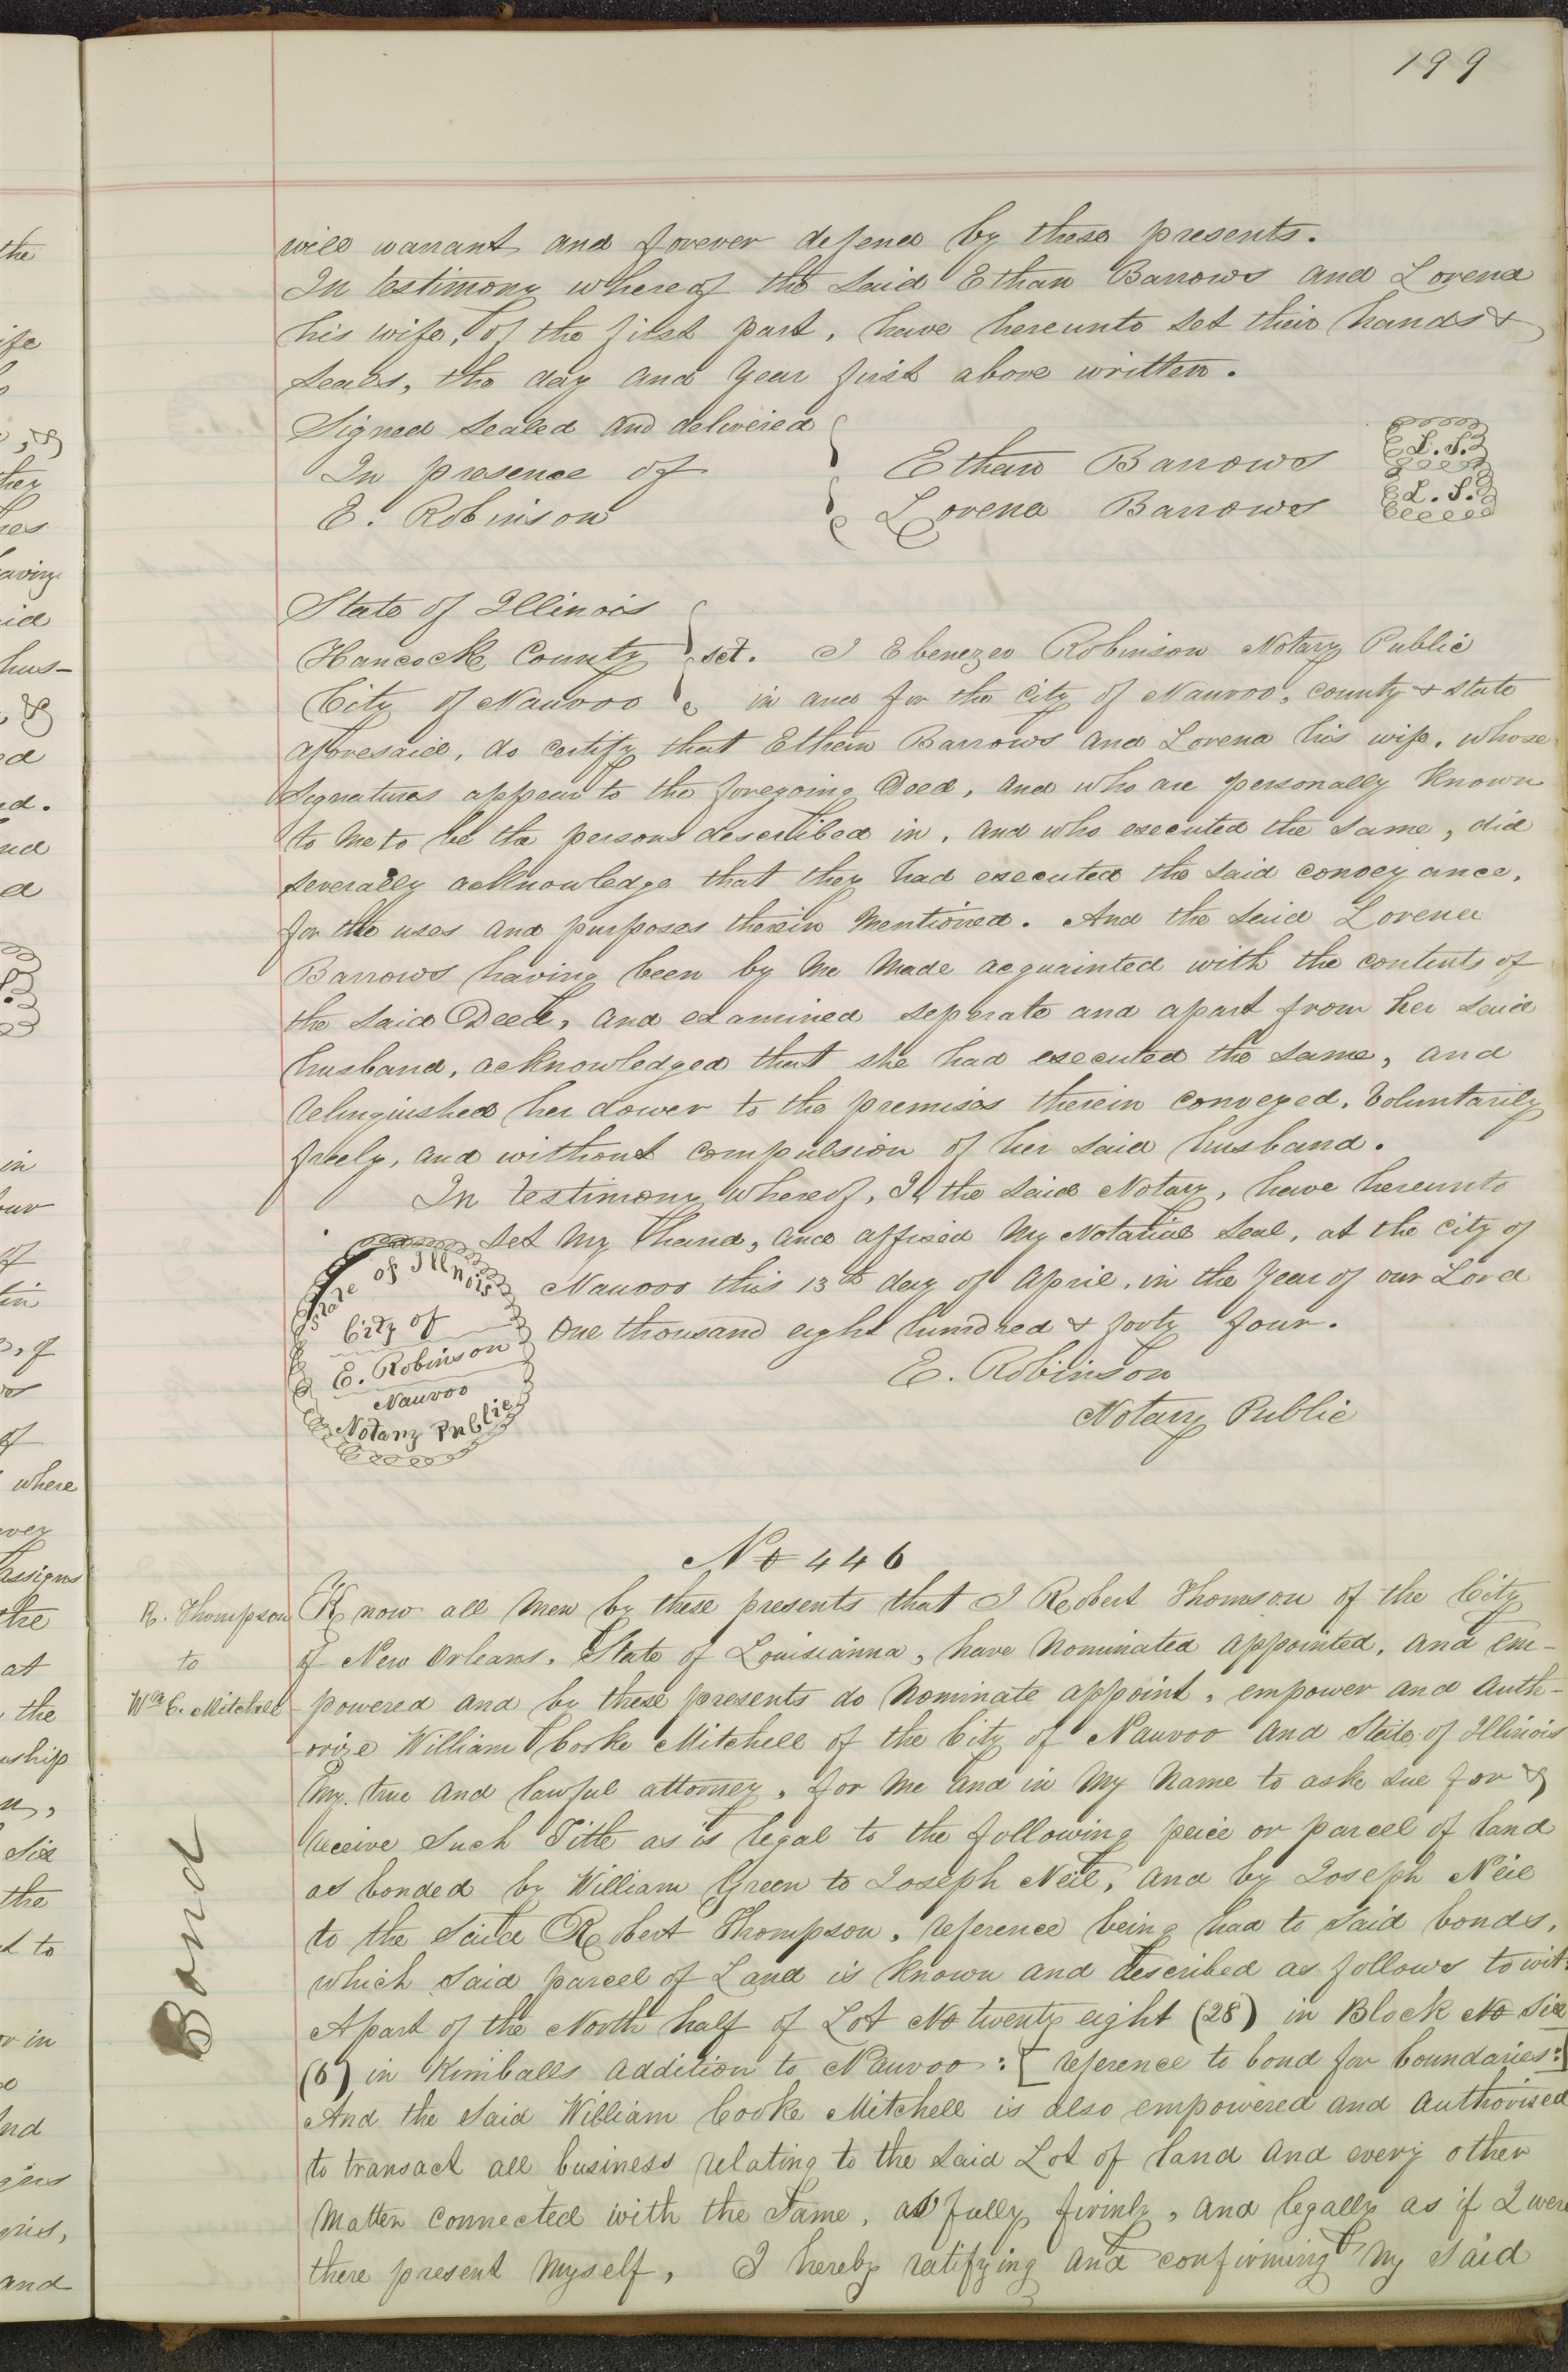 199
will warrant and forever defend by these presents.
In testimony whereof the said Ethan Barrows and Lorena
his wife, of the first part, have hereunto set their hands &
seals, the day and year first above written.
Signed sealed and delivered
In presence of
E. Robinson
Ethan Barrows L.S.
Lorena Barrows L.S.
State of Illinois
Hancock County sct. I Ebenezer Robinson Notary Public
City of Nauvoo in and for the city of Nauvoo, county & state
aforesaid, do certify that Ethan Barrows and Lorena his wife, whose
signatures appear to the foregoing Deed, and who are personally known
to me to be the persons described in, and who executed the same, did
severally acknowledge that they had executed the said conveyance,
for the uses and purposes therein mentioned. And the said Lorena
Barrows having been by me made acquainted with the contents of
the said Deed, and examined seperate and apart from her said
husband, acknowledged that she had executed the same, and
relinquished her dower to the premises therein conveyed, voluntarily
freely, and without compulsion of her said husband.
In testimony whereof, I, the said Notary, have hereunto
set my hand, and affixed my Notarial seal, at the city of
Nauvoo this 13th day of April, in the Year of our Lord
One thousand eight hundred & forty four.
State of Illinois
City of
E. Robinson
Nauvoo
Notary Public
E. Robinson
Notary Public
No 446
R. Thompson
to
Wm C. Mitchell
Bond
Know all men by these presents that I Robert Thomson of the City
of New Orleans, State of Louisianna, have nominated appointed, and em-
powered and by these presents do nominate appoint, empower and auth-
orize William Cooke Mitchell of the City of Nauvoo and State of Illinois
my true and lawful attorney, for me and in my name to ask sue for &
receive such Title as is legal to the following peice or parcel of land
as bonded by William Green to Joseph Neil, and by Joseph Neil
to the said Robert Thompson, reference being had to said bonds,
which said parcel of Land is known and described as follows to wit:
A part of the North half of Lot No twenty eight (28) in Block No six
(6) in Kimballs addition to Nauvoo: [reference to bond for boundaries:]
And the said William Cooke Mitchell is also empowered and authorised
to transact all business relating to the said Lot of land and every other
matter connected with the same, as fully firmly, and legally as if I were
there present myself, I hereby ratifying and confirming my said